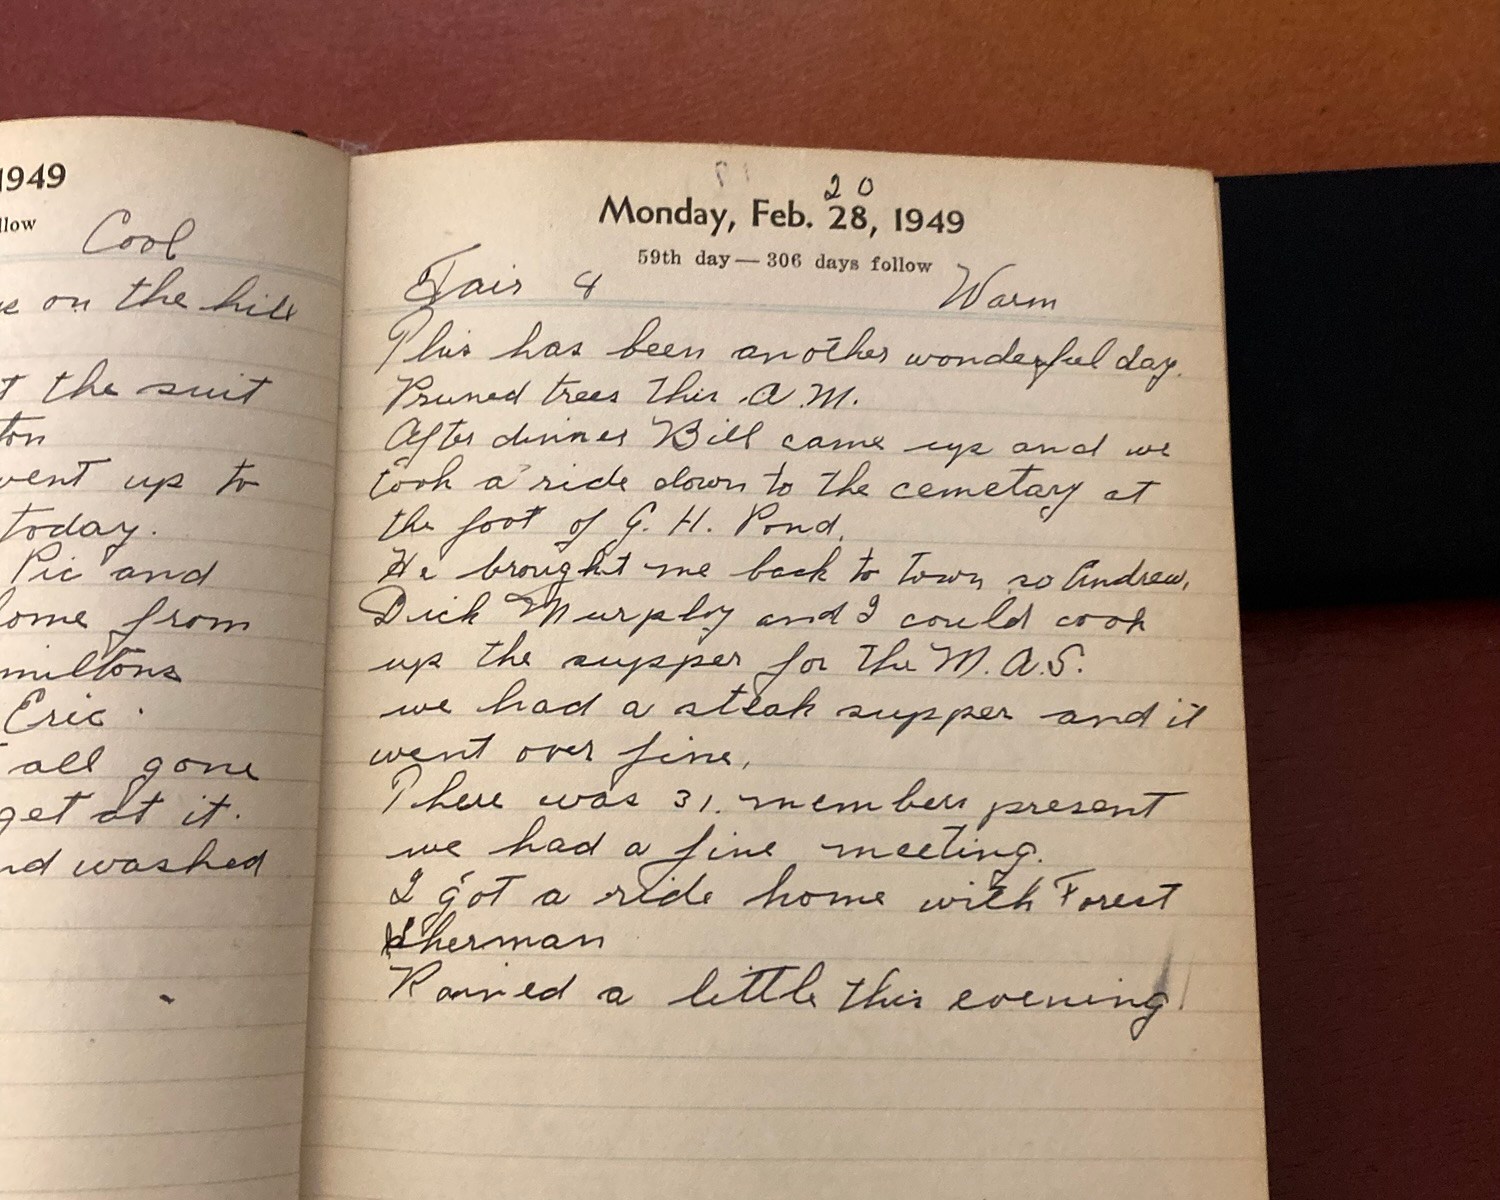 1949
llow
Cool
on the hill
t the suit
ton
went up to
today.
Pic and
home from
miltons
Eric.
all gone
get at it.
nd washed
20
Monday, Feb. 28, 1949
59th day — 306 days follow
Fair & Warm
This has been another wonderful day.
Pruned trees this A.M.
After dinner Bill came up and we
took a ride down to the cemetary at
the foot of G. H. Pond.
He brought me back to town so Andrew,
Dick Murphy and I could cook
up the supper for the M.A.S.
we had a steak supper and it
went over fine.
There was 31. members present
we had a fine meeting.
I got a ride home with Forest
Sherman
Rained a little this evening